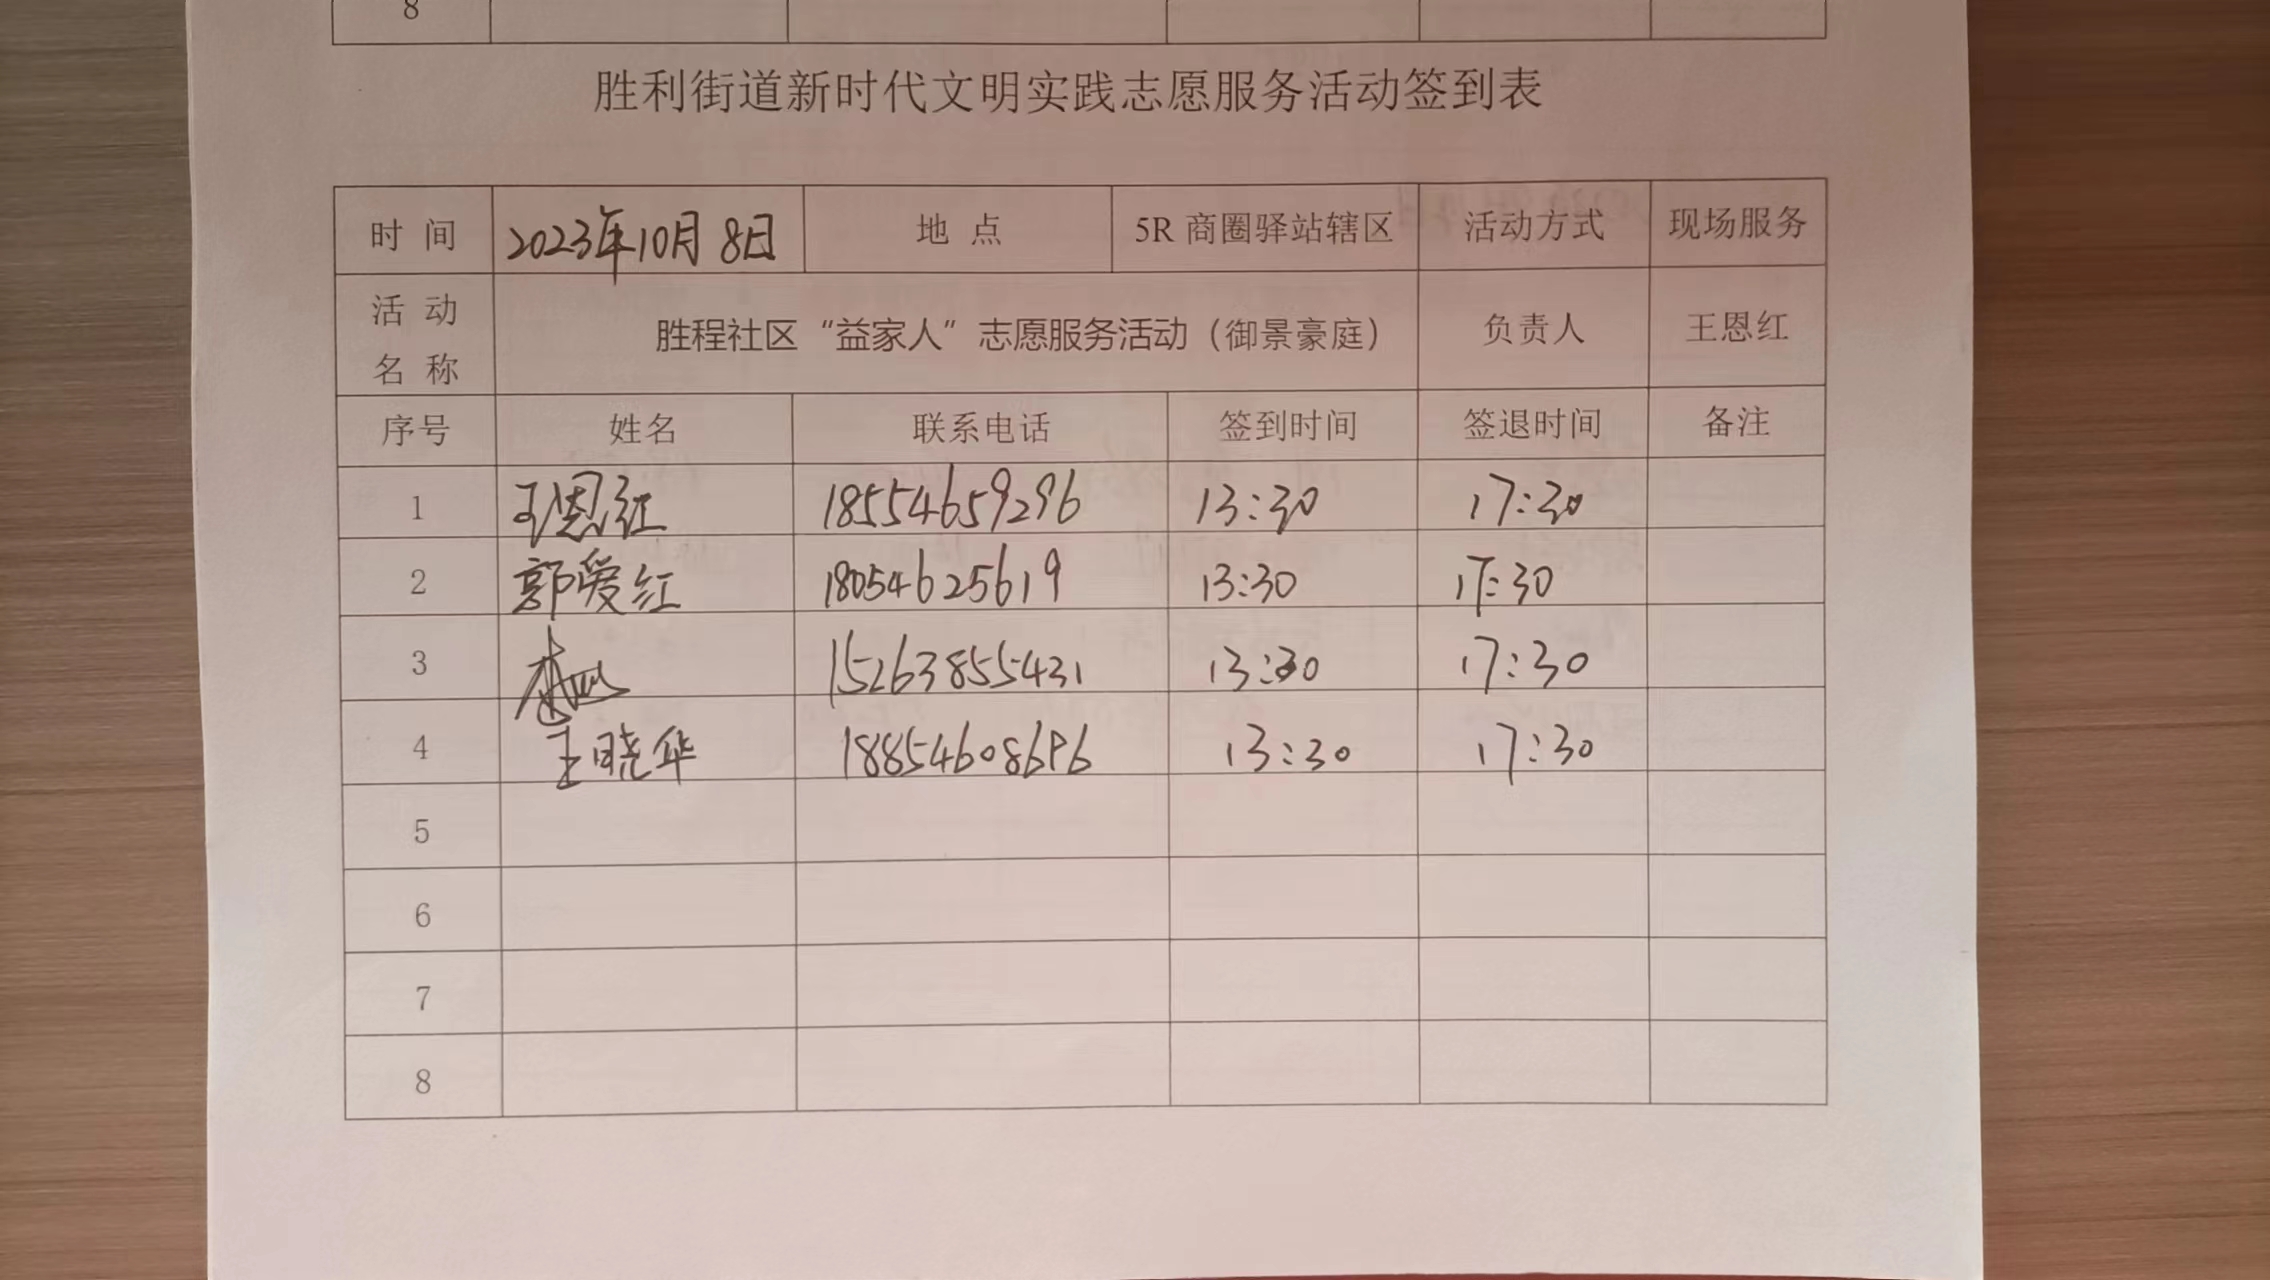 8
胜利街道新时代文明实践志愿服务活动签到表
时 间 2023年10月8日 地 点 5R 商圈驿站辖区 活动方式 现场服务
活 动
名 称 胜程社区“益家人”志愿服务活动（御景豪庭） 负责人 王恩红
序号 姓名 联系电话 签到时间 签退时间 备注
1 王恩红 18554659296 13:30 17:30
2 郭爱红 18054625619 13:30 17:30
3 15263855431 13:30 17:30
4 王晓华 18854608696 13:30 17:30
5
6
7
8